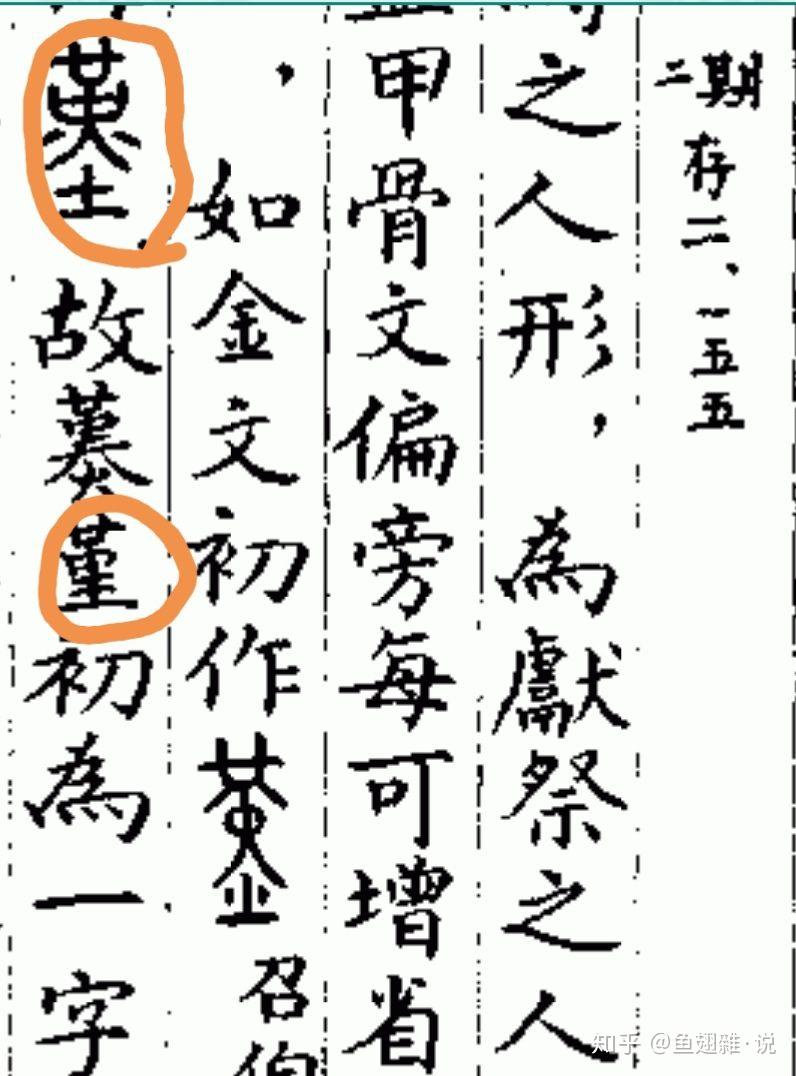 二期存二、一五五
之人形，為獻祭之人
甲骨文偏旁每可增省
，如金文初作 召伯
故𦰩堇初為一字
知乎 @鱼翅雜·说